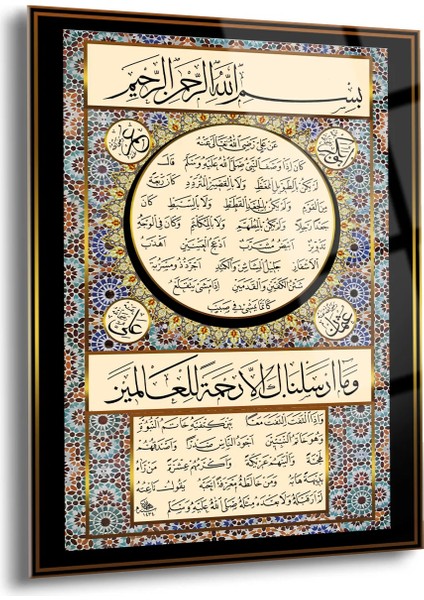 بسم الله الرحمن الرحيم
ابوبكر
عمر
عن علي رضي الله تعالى عنه
كان اذا وصف النبي صلى الله عليه وسلم قال
لم يكن بالطويل الممغط ولا بالقصير المتردد وكان ربعة
من القوم ولم يكن بالجعد القطط ولا بالسبط كان
جعدا رجلا ولم يكن بالمطهم ولا بالمكلثم وكان في الوجه
تدوير ابيض مشرب ادعج العينين اهدب
الاشفار جليل المشاش والكتد اجرد ذو مسربة
شثن الكفين والقدمين اذا مشى يتقلع
كانما يمشي في صبب
عثمان
علي
وما ارسلناك الا رحمة للعالمين
واذا التفت التفت معا بين كتفيه خاتم النبوة
وهو خاتم النبيين اجود الناس صدرا واصدقهم
لهجة والينهم عريكة واكرمهم عشرة من رآه
بديهة هابه ومن خالطه معرفة احبه يقول ناعته
لم ار قبله ولا بعده مثله صلى الله عليه وسلم